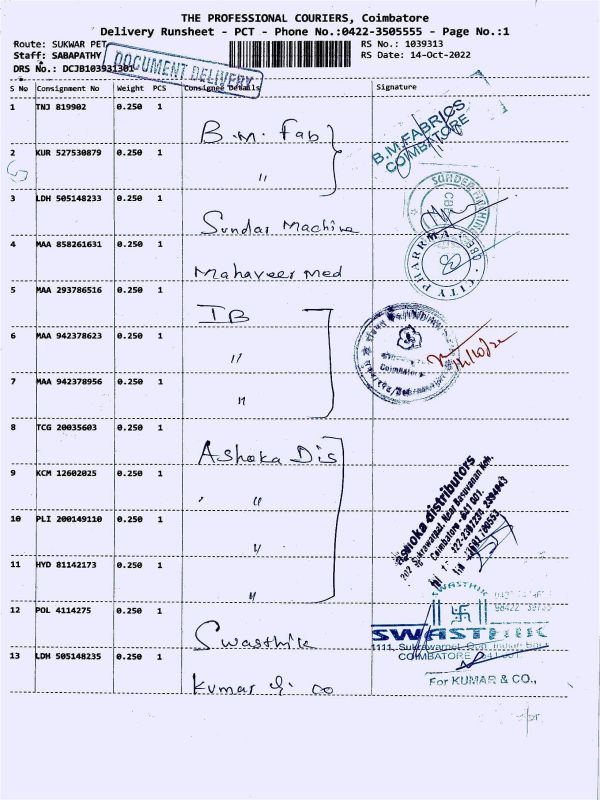 THE PROFESSIONAL COURIERS, Coimbatore
Delivery Runsheet - PCT - Phone No.:0422-3505555 - Page No.:1
Route: SUKWAR PET
RS No.: 1039313
Staff: SABAPATHY
RS Date: 14-Oct-2022
DRS No.: DCJB103931301
DOCUMENT DELIVERY
S No Consignment No Weight PCS Consignee Details Signature
1 TNJ 819902 0.250 1
B.M. Fab
B.M.FABRICS
COIMBATORE
2 KUR 527530879 0.250 1
"
3 LDH 505148233 0.250 1
Sundar Machine
4 MAA 858261631 0.250 1
Mahaveer Med
CITY PHARMA
5 MAA 293786516 0.250 1
IB
6 MAA 942378623 0.250 1
"
Coimbatore
7 MAA 942378956 0.250 1
"
8 TCG 20035603 0.250 1
Ashoka Dis
9 KCM 12602025 0.250 1
"
Ashoka distributors
Coimbatore - 641 001.
10 PLI 200149110 0.250 1
"
11 HYD 81142173 0.250 1
"
SWASTHIK
12 POL 4114275 0.250 1
Swasthik
SWASTHIK
COIMBATORE
13 LDH 505148235 0.250 1
Kumar & co
For KUMAR & CO.,